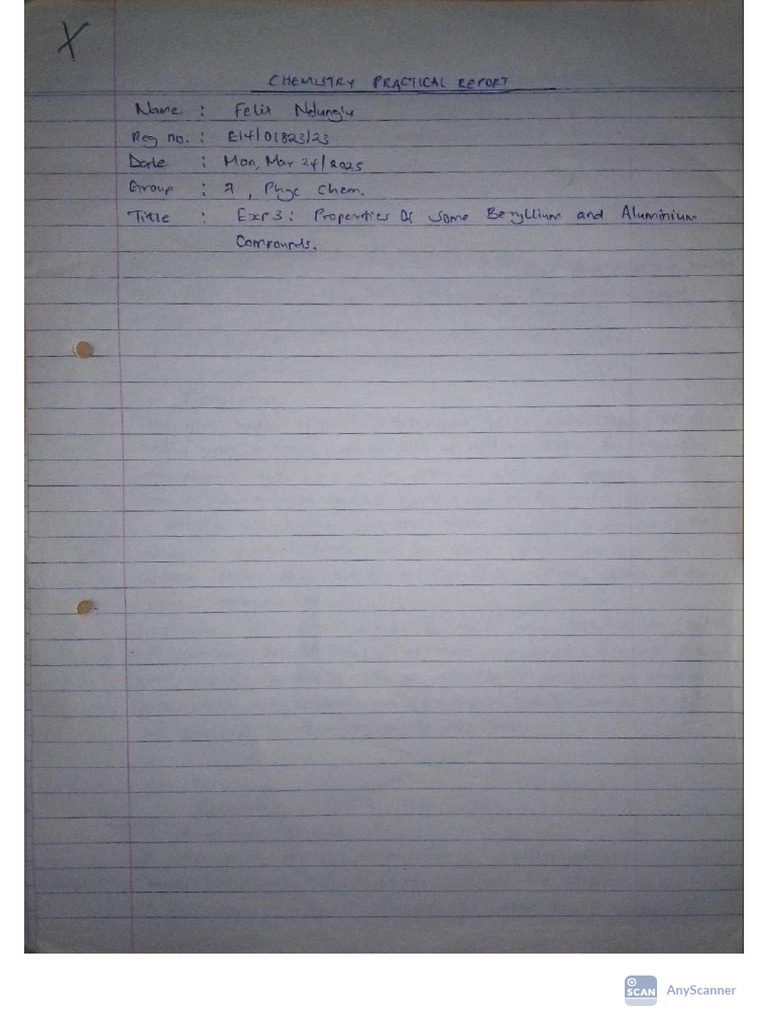 X
CHEMISTRY PRACTICAL REPORT
Name : Felix Ndung'u
Reg no. : E14/01823/23
Date : Mon, Mar 24/2025
Group : 7, Phyc Chem.
Title : Exp 3: Properties Of Some Beryllium and Aluminium
Compounds.
SCAN AnyScanner